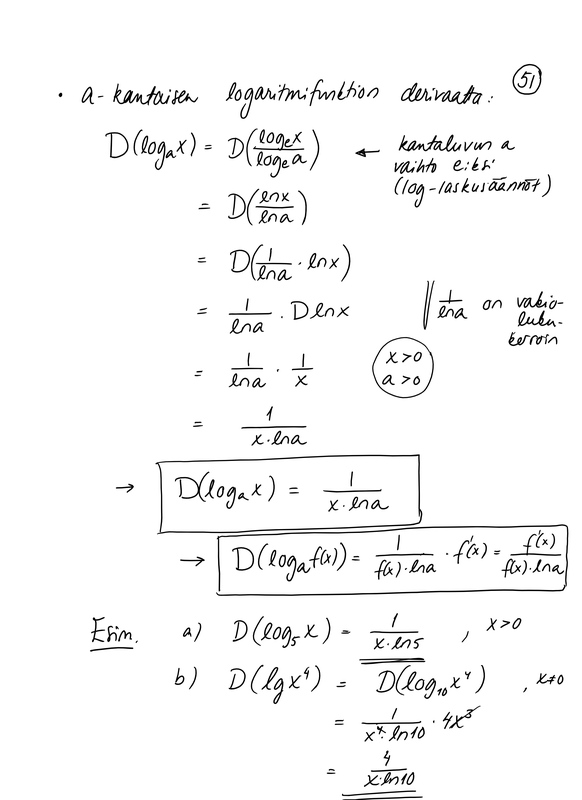 51
• a-kantaisen logaritmifunktion derivaatta:
D(logₐx) = D(logₑx / logₑa) ← kantaluvun a
vaihto e:ksi
(log-laskusäännöt)
= D(lnx / lna)
= D(1/lna · lnx)
= 1/lna · D lnx || 1/lna on vakio-
luku-
kerroin
= 1/lna · 1/x
x>0
a>0
= 1/(x·lna)
→ D(logₐx) = 1/(x·lna)
→ D(logₐf(x)) = 1/(f(x)·lna) · f'(x) = f'(x)/(f(x)·lna)
Esim. a) D(log₅x) = 1/(x·ln5) , x>0
b) D(lgx⁴) = D(log₁₀x⁴) , x≠0
= 1/(x⁴·ln10) · 4x³
= 4/(x·ln10)